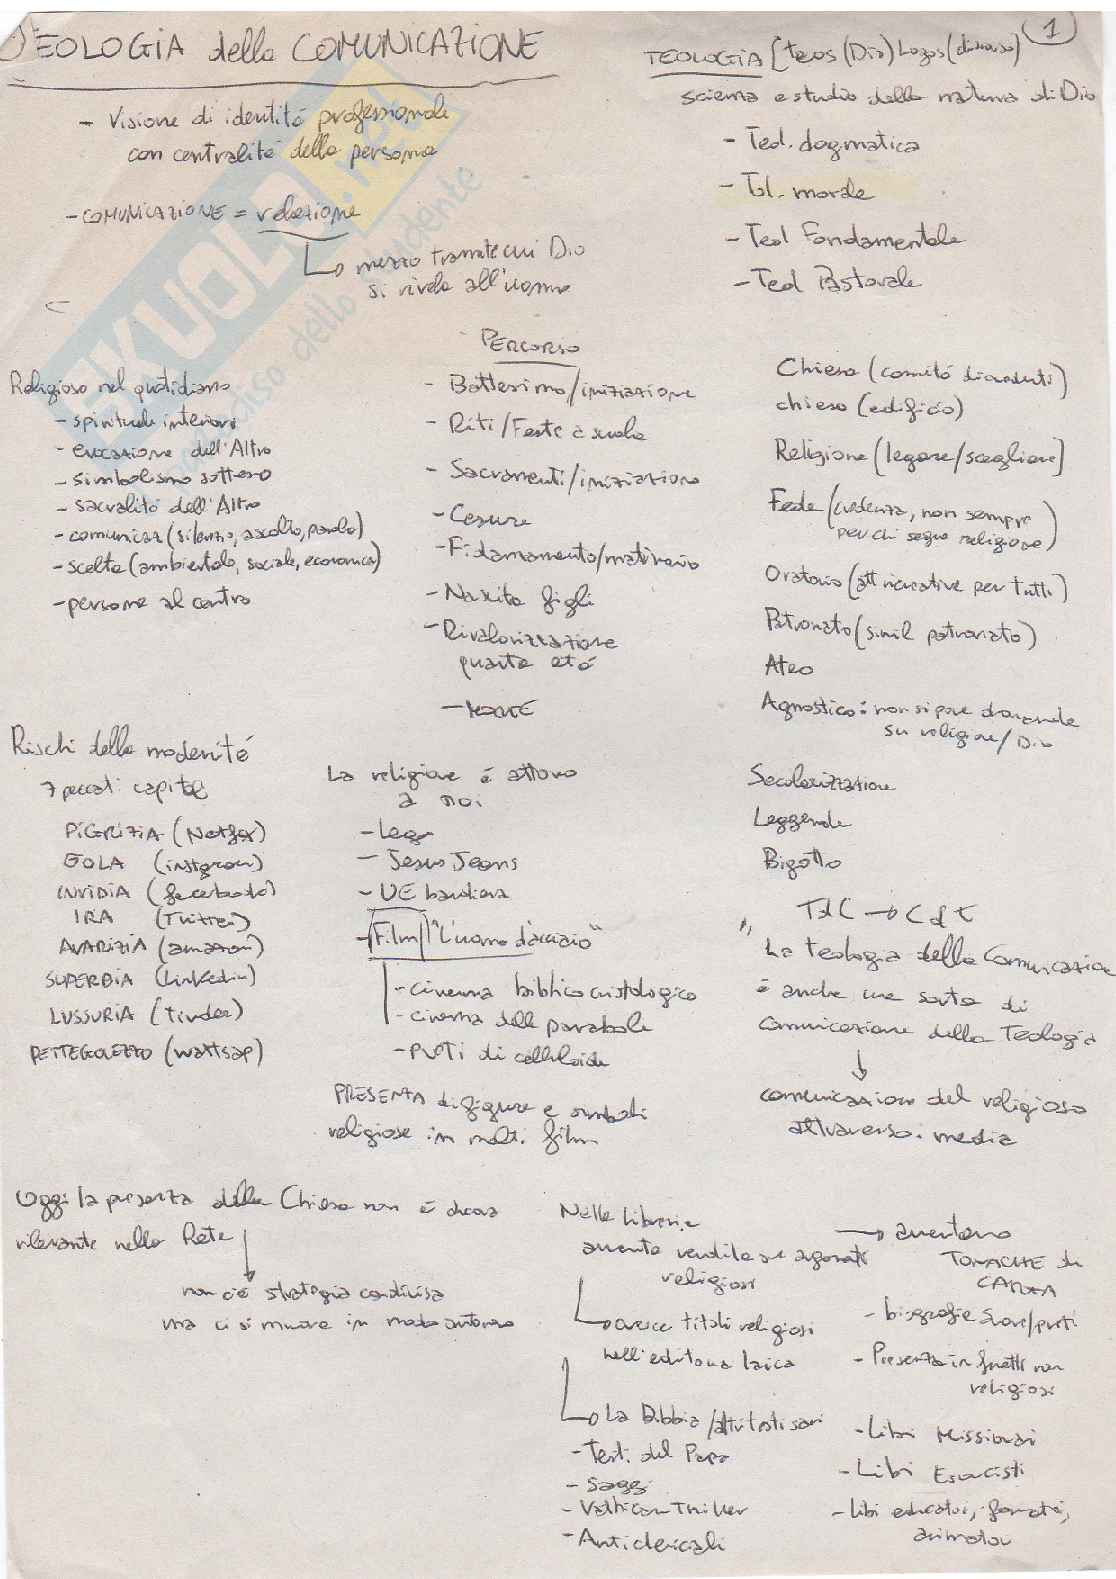 TEOLOGIA della COMUNICAZIONE
1
- Visione di identità professionale
con centralità della persona
- COMUNICAZIONE = relazione
mezzo tramite cui Dio
si rivela all'uomo
TEOLOGIA [teos (Dio) Logos (discorso)
scienza e studio della natura di Dio
- Teol. dogmatica
- Tel. morale
- Teol Fondamentale
- Teol Pastorale
SKUOLA.net
paradiso dello studente
Religioso nel quotidiano
- spirituale interiori
- evocazione dell'Altro
- simbolismo sotteso
- sacralità dell'Altro
- comunicaz (silenzio, ascolto, parola)
- scelte (ambientale, sociale, economica)
- persone al centro
PERCORSO
- Battesimo/iniziazione
- Riti/Feste a scuola
- Sacramenti/iniziazione
- Cesure
- Fidanzamento/matrimonio
- Nascita figli
- Rivalorizzazione
quarta età
- MORTE
Chiesa (comità di credenti)
chiesa (edificio)
Religione (legare/scegliere)
Fede (credenza, non sempre
per chi segue religione)
Oratorio (att ricreative per tutti)
Patronato (simil patronato)
Ateo
Agnostico: non si pone domande
su religione/Dio
Secolarizzazione
Leggende
Bigotto
Rischi della modernità
7 peccati capitali
PIGRIZIA (Netflix)
GOLA (instagram)
INVIDIA (facebook)
IRA (Twitter)
AVARIZIA (amazon)
SUPERBIA (linkedin)
LUSSURIA (tinder)
PETTEGOLEZZO (wattsap)
La religione è attorno
a noi
- Lego
- Jesus Jeans
- UE bandiera
- Film "L'uomo d'acciaio"
- cinema biblico cristologico
- cinema delle parabole
- preti di celluloide
PRESENZA di figure e simboli
religiose in molti film
TdC → CdT
"La teologia della Comunicazione
è anche una sorta di
comunicazione della Teologia
comunicazione del religioso
attraverso i media
Oggi la presenza della Chiesa non è ancora
rilevante nella Rete
non c'è strategia condivisa
ma ci si muove in modo autonomo
Nelle librerie
aumenta vendita su argomenti
religiosi
cresce titoli religiosi
nell'editoria laica
La Bibbia/altri testi sacri
- Testi del Papa
- Saggi
- Vatican Thriller
- Anticlericali
→ aumentano
TONACHE di
CARTA
- biografie suore/preti
- Presenza in fumetti non
religiosi
- Libri Missionari
- Libri Esorcisti
- libri educatori, formatori,
animatori